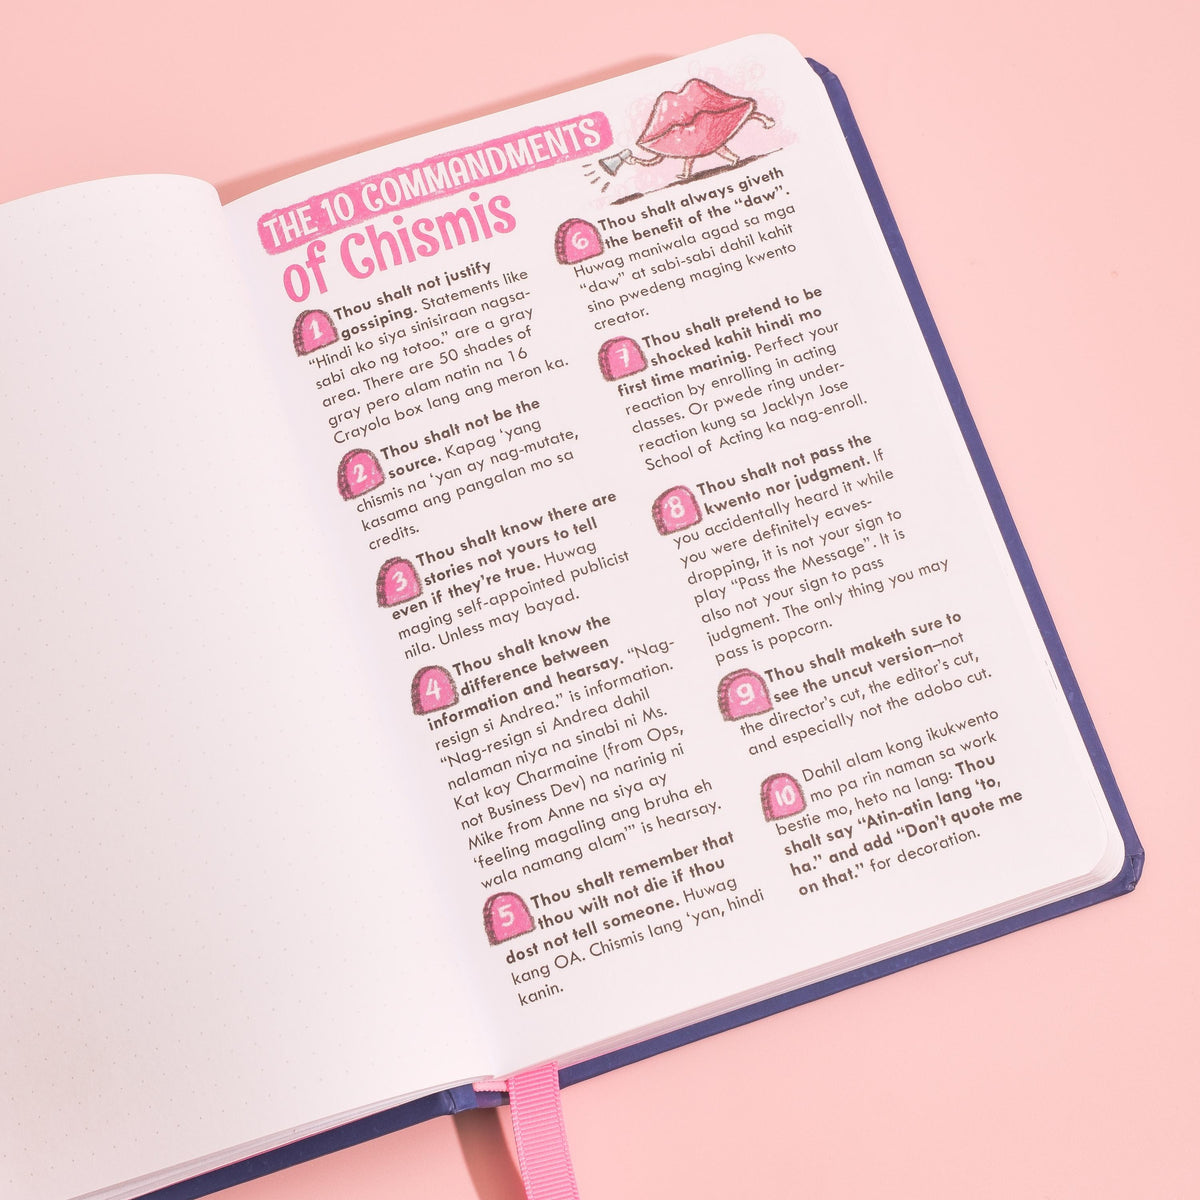 THE 10 COMMANDMENTS
of Chismis
1
Thou shalt not justify
gossiping. Statements like
"Hindi ko siya sinisiraan nagsa-
sabi ako ng totoo." are a gray
area. There are 50 shades of
gray pero alam natin na 16
Crayola box lang ang meron ka.
2
Thou shalt not be the
source. Kapag 'yang
chismis na 'yan ay nag-mutate,
kasama ang pangalan mo sa
credits.
3
Thou shalt know there are
stories not yours to tell
even if they're true. Huwag
maging self-appointed publicist
nila. Unless may bayad.
4
Thou shalt know the
difference between
information and hearsay. "Nag-
resign si Andrea." is information.
"Nag-resign si Andrea dahil
nalaman niya na sinabi ni Ms.
Kat kay Charmaine (from Ops,
not Business Dev) na narinig ni
Mike from Anne na siya ay
'feeling magaling ang bruha eh
wala namang alam'" is hearsay.
5
Thou shalt remember that
thou wilt not die if thou
dost not tell someone. Huwag
kang OA. Chismis lang 'yan, hindi
kanin.
6
Thou shalt always giveth
the benefit of the "daw".
Huwag maniwala agad sa mga
"daw" at sabi-sabi dahil kahit
sino pwedeng maging kwento
creator.
7
Thou shalt pretend to be
shocked kahit hindi mo
first time marinig. Perfect your
reaction by enrolling in acting
classes. Or pwede ring under-
reaction kung sa Jacklyn Jose
School of Acting ka nag-enroll.
8
Thou shalt not pass the
kwento nor judgment. If
you accidentally heard it while
you were definitely eaves-
dropping, it is not your sign to
play "Pass the Message". It is
also not your sign to pass
judgment. The only thing you may
pass is popcorn.
9
Thou shalt maketh sure to
see the uncut version–not
the director's cut, the editor's cut,
and especially not the adobo cut.
10
Dahil alam kong ikukwento
mo pa rin naman sa work
bestie mo, heto na lang: Thou
shalt say "Atin-atin lang 'to,
ha." and add "Don't quote me
on that." for decoration.